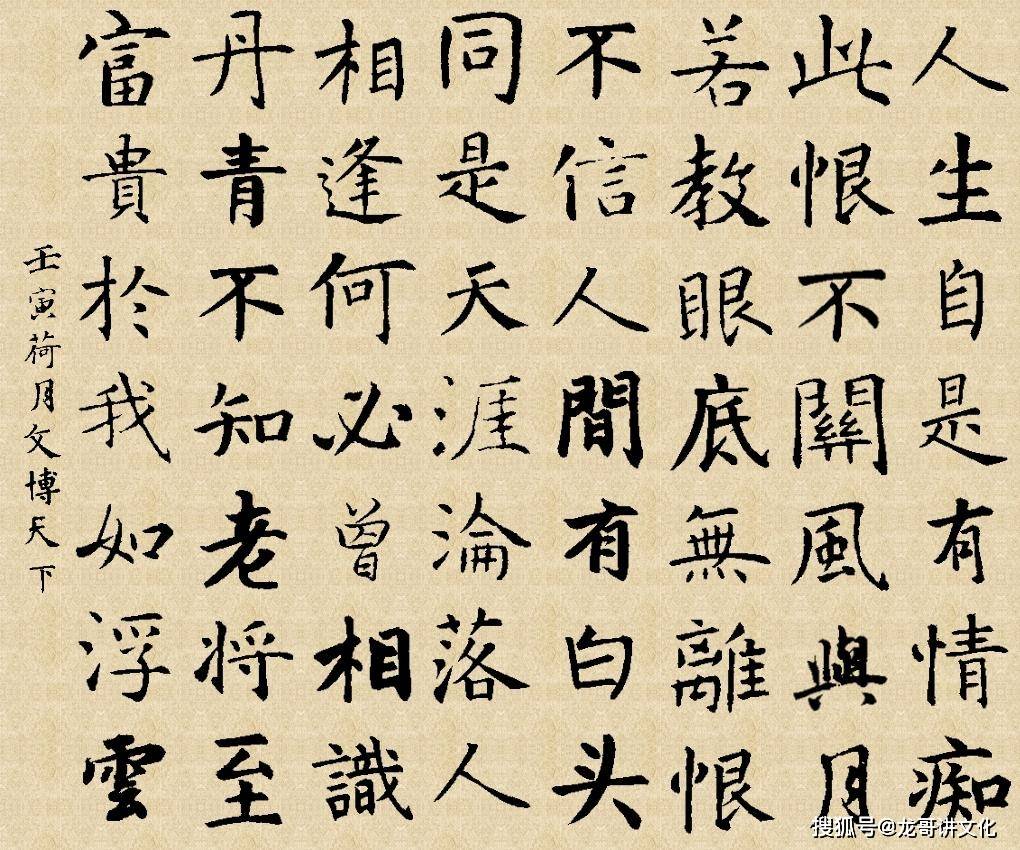 人生自是有情痴
此恨不關風與月
若教眼底無離恨
不信人間有白头
同是天涯淪落人
相逢何必曾相識
丹青不知老将至
富貴於我如浮雲
壬寅荷月文博天下
搜狐号@龙哥讲文化